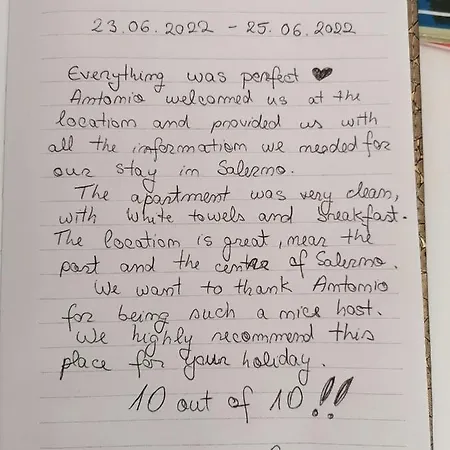 23.06.2022 - 25.06.2022
Everything was perfect ♥
Antonio welcomed us at the
location and provided us with
all the information we needed for
our stay in Salerno.
The apartment was very clean,
with white towels and breakfast.
The location is great, near the
port and the centre of Salerno.
We want to thank Antonio
for being such a nice host.
We highly recommend this
place for your holiday.
10 out of 10!!